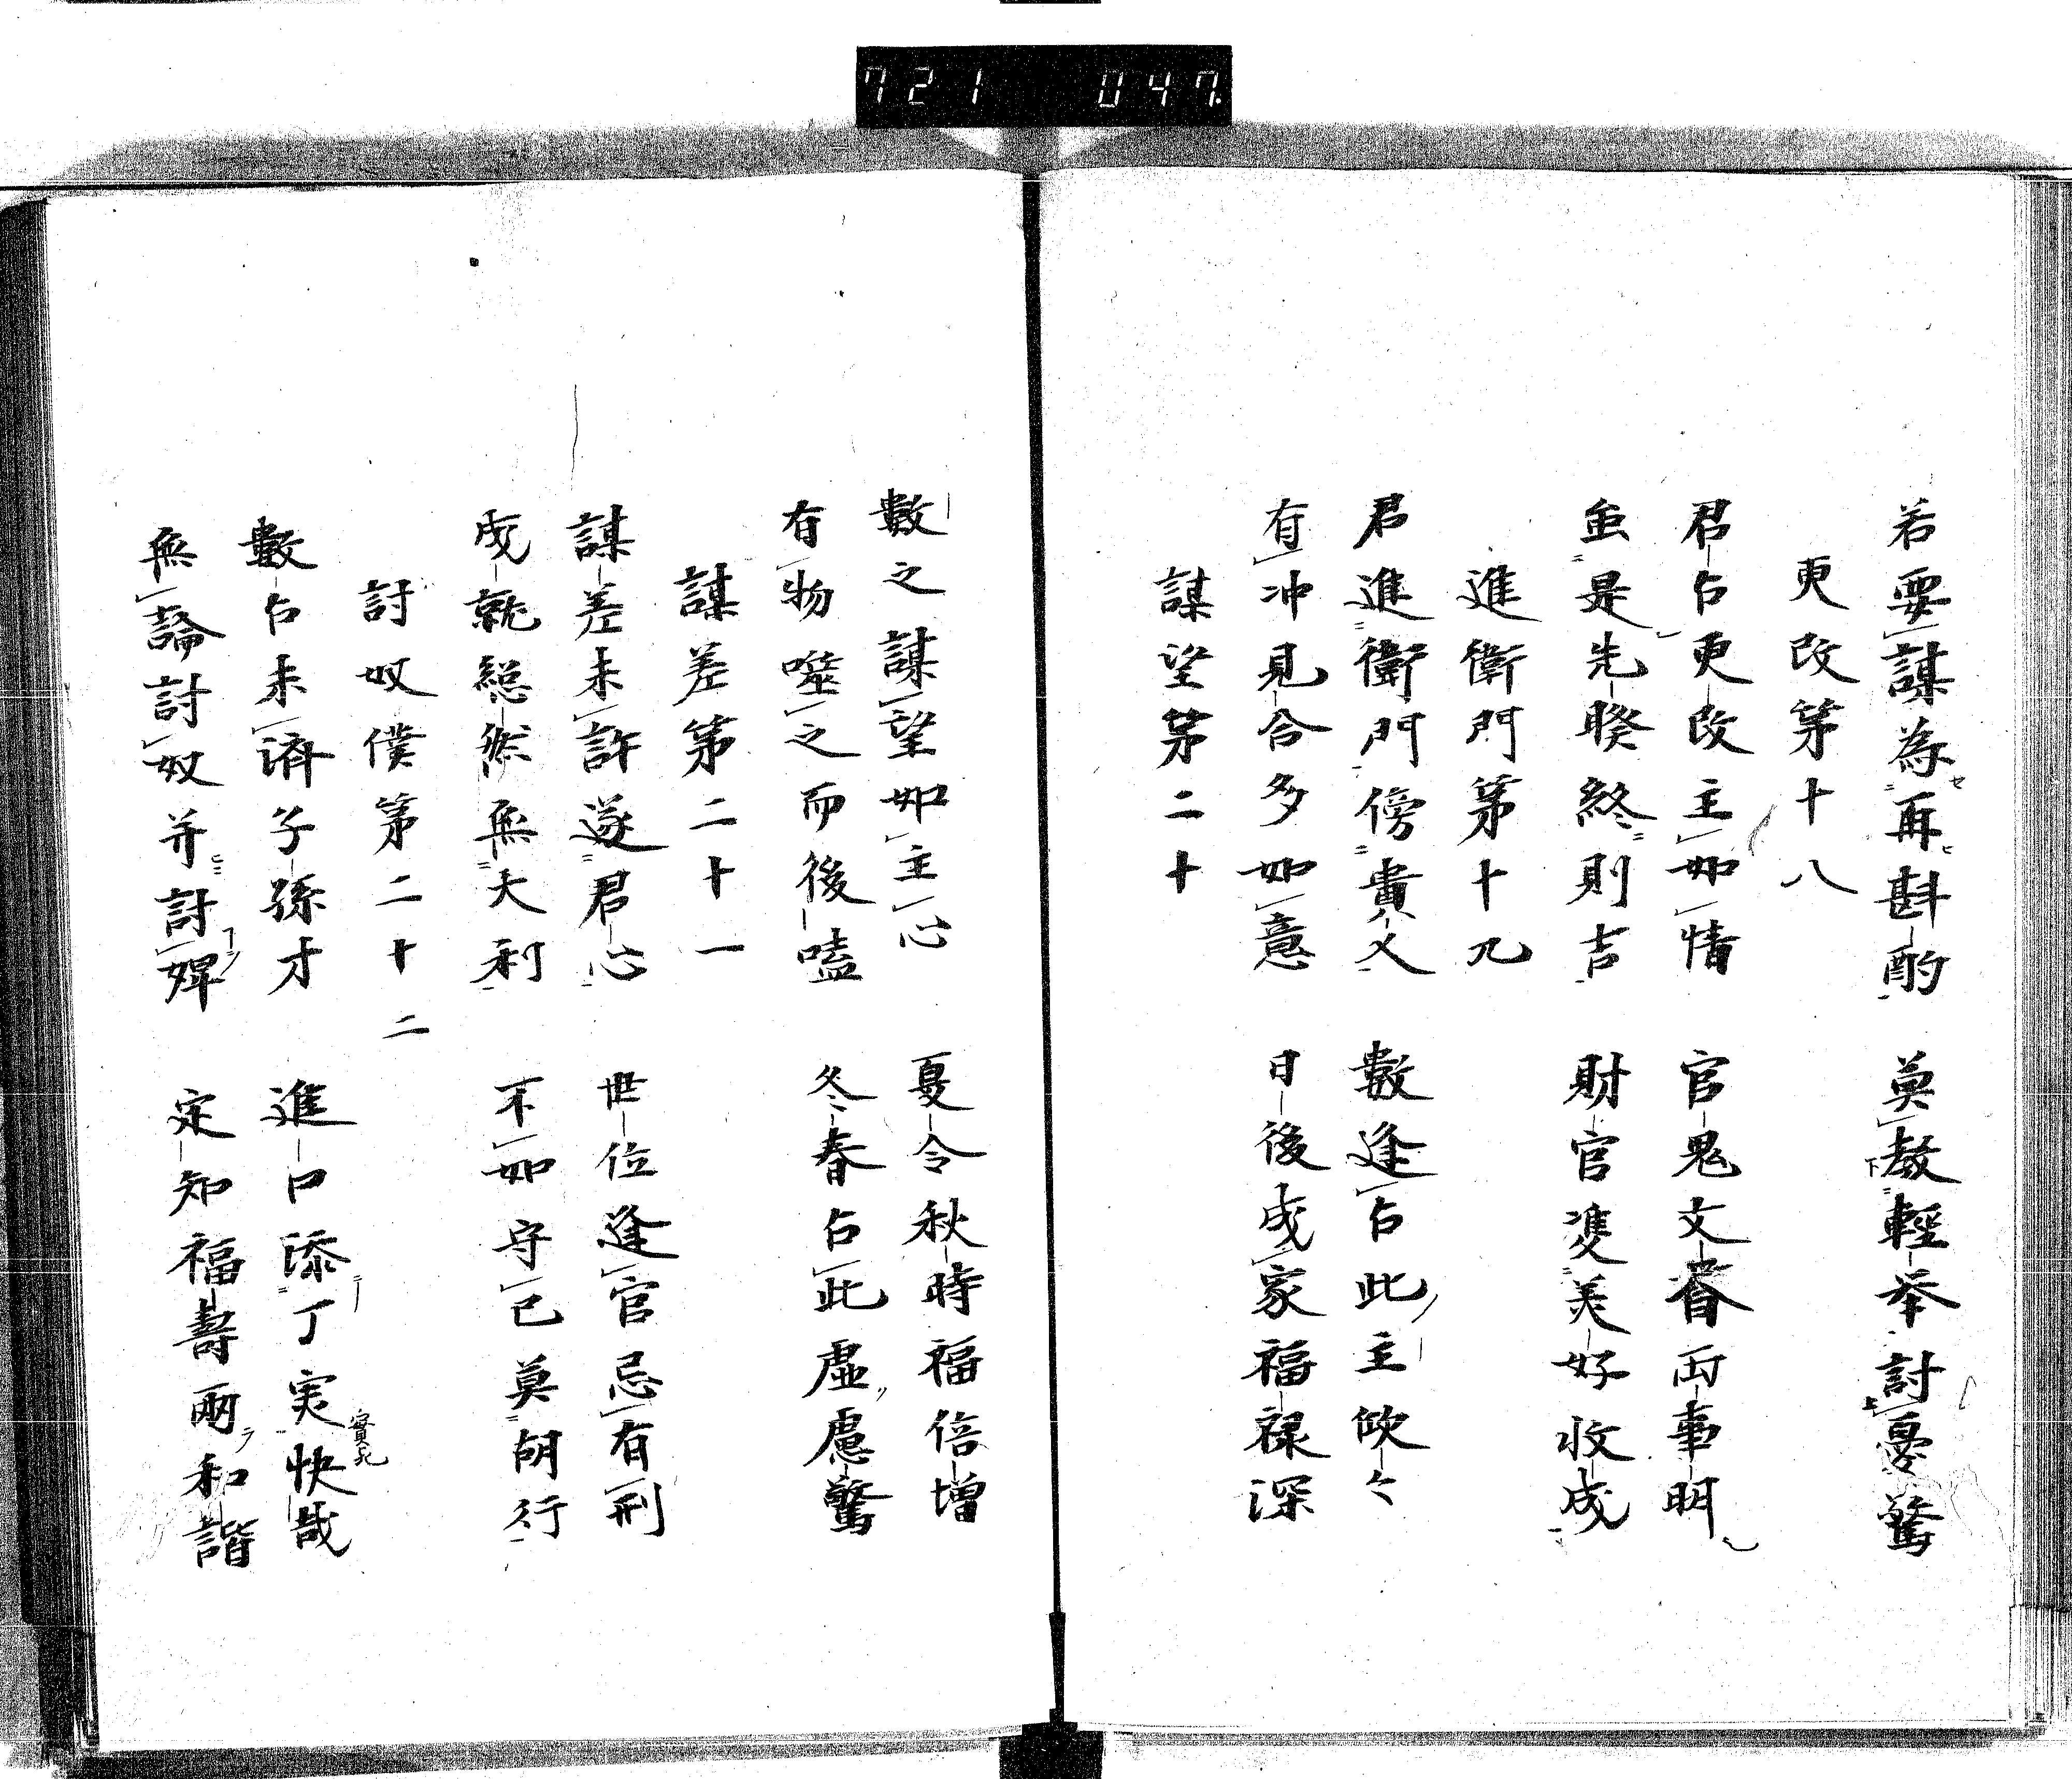 721 047
若要謀為再斟酌 莫教輕举討憂驚
更改第十八
君占更改主如情 官鬼文書両事明
虽是先睽終則吉 財官雙美好收成
進衙門第十九
君進衙門傍貴人 數逢占此主欣々
有冲見合多如意 日後成家福禄深
謀望第二十
數之謀望如主心 夏令秋時福倍增
有物噬之而後嗑 冬春占此虛慮驚
謀差第二十一
謀差未許遂君心 世位逢官忌有刑
成就総然無大利 不如守己莫胡行
討奴僕第二十二
數占未済子孫才 進口添丁実快哉
無論討奴并討婢 定知福壽兩和諧